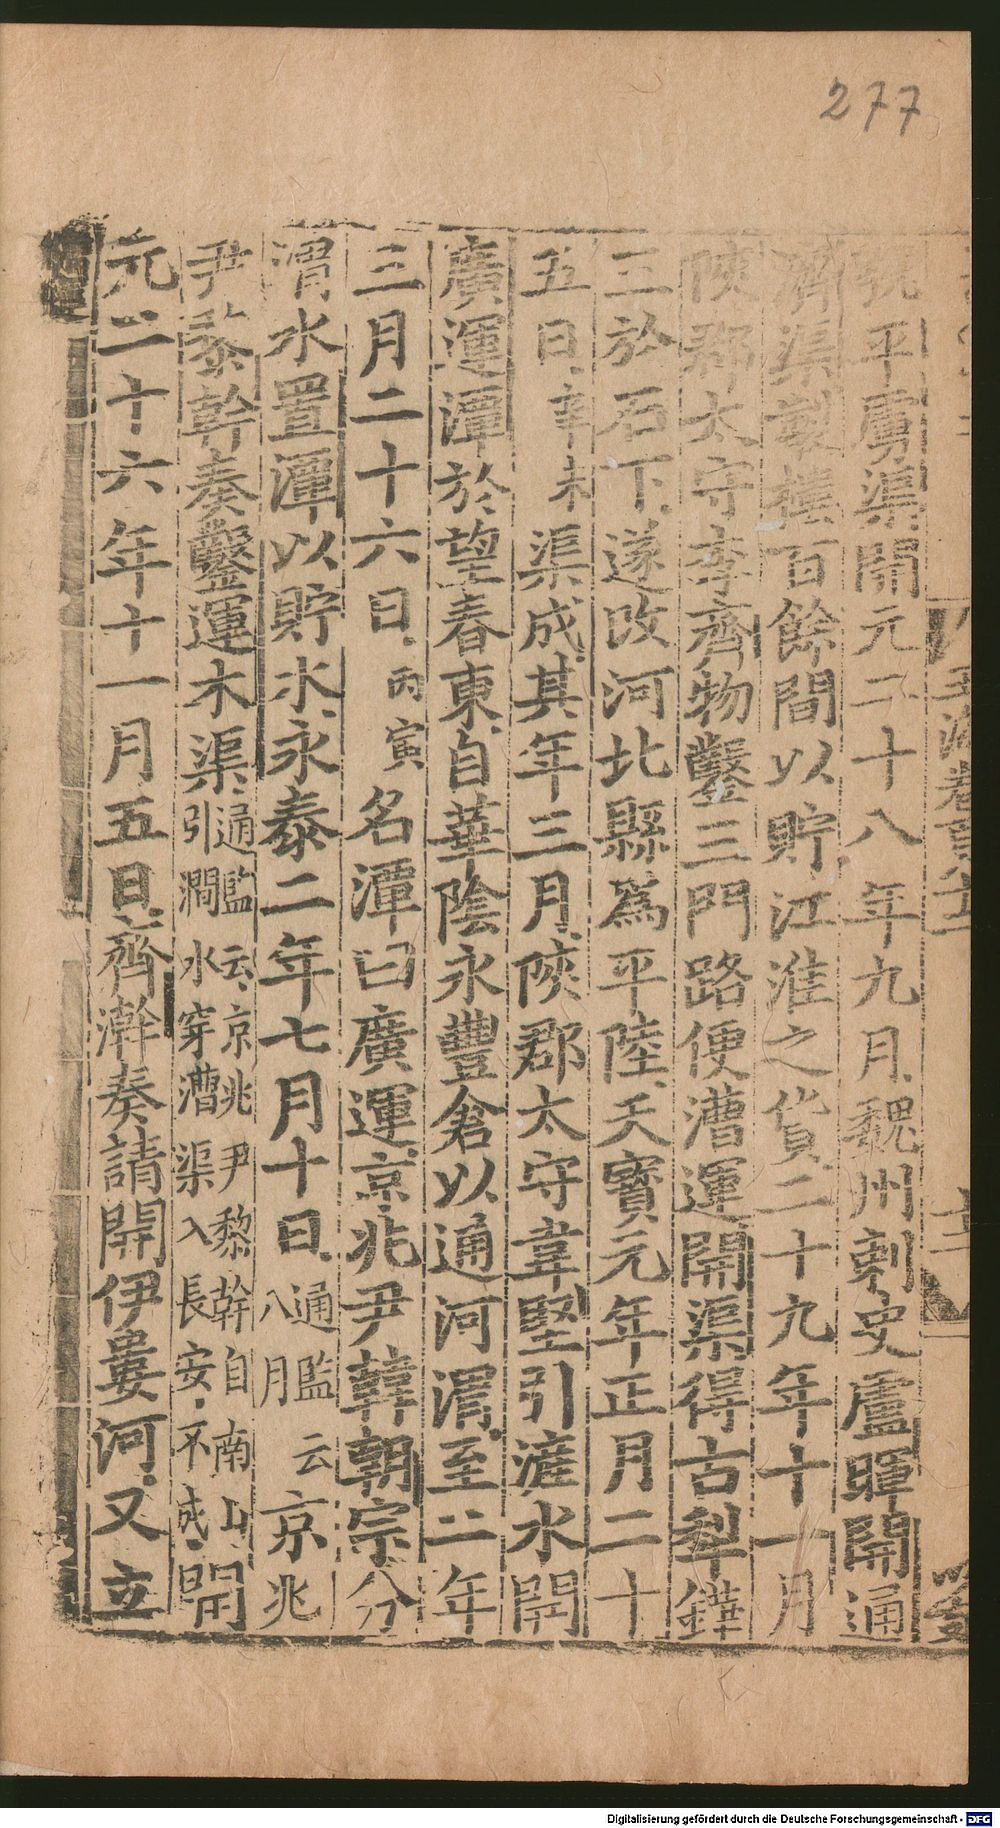 277
號平虜渠開元二十八年九月魏州刺史盧暉開通
濟渠製樓百餘間以貯江淮之貨二十九年十一月
陝郡太守李齊物鑿三門路便漕運開渠得古犁鏵
三於石下遂改河北縣為平陸天寶元年正月二十
五日辛未渠成其年三月陝郡太守韋堅引滻水開
廣運潭於望春東自華陰永豐倉以通河渭至二年
三月二十六日丙寅名潭曰廣運京兆尹韓朝宗分
渭水置潭以貯水永泰二年七月十日通鑑云八月京兆
尹黎幹奏鑿運木渠通鑑云京兆尹黎幹自南山引澗水穿漕渠入長安不成開
元二十六年十一月五日齊澣奏請開伊婁河又立
Digitalisierung gefördert durch die Deutsche Forschungsgemeinschaft - DFG